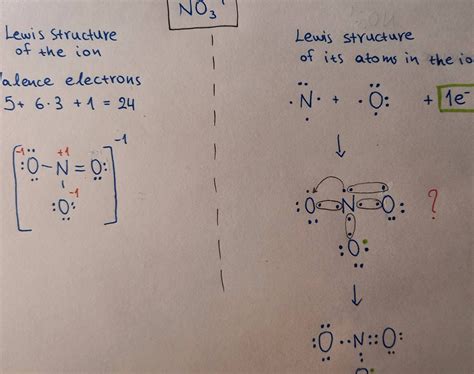 NO₃⁻
Lewis Structure
of the ion
Valence electrons
5 + 6·3 + 1 = 24
-1 +1 -1
:O-N=O:
:O: -1
Lewis structure
of its atoms in the io
·N· + ·O: + 1e⁻
:O N O: ?
O
:O··N::O: